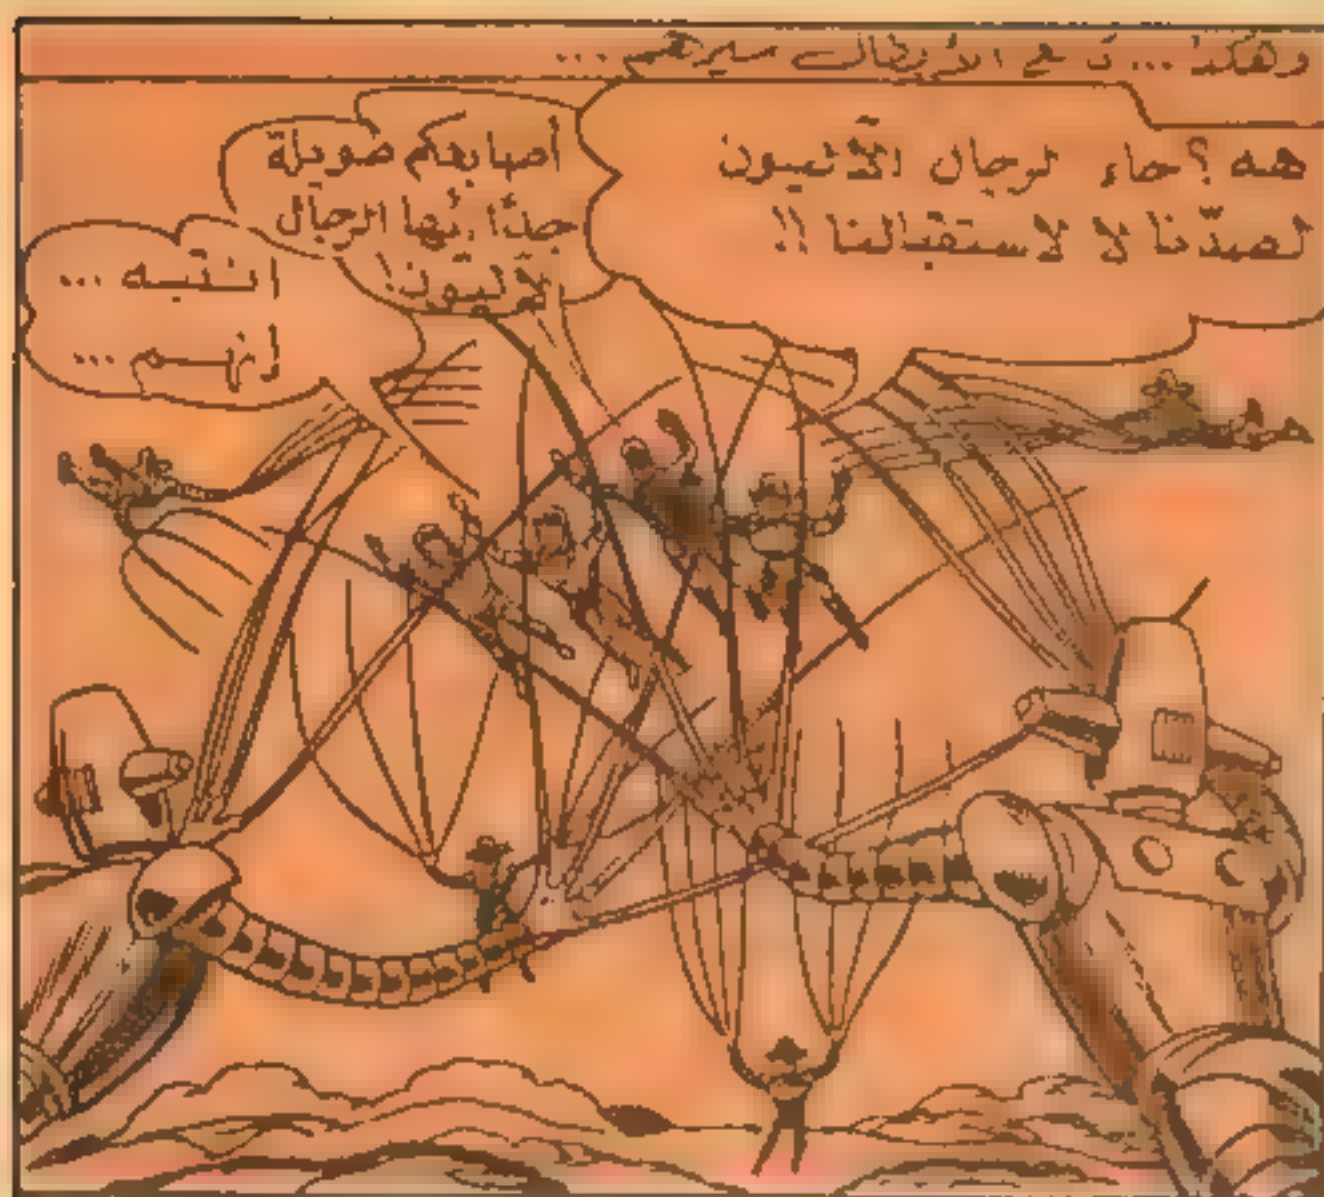 وهكذا ... تابع الأبطال سيرهم ...
هه ؟ جاء الرجال الآليون
لصدّنا لا لاستقبالنا !!
أصابعكم طويلة
جدًّا أيّها الرجال
الآليّون !
انتبه ...